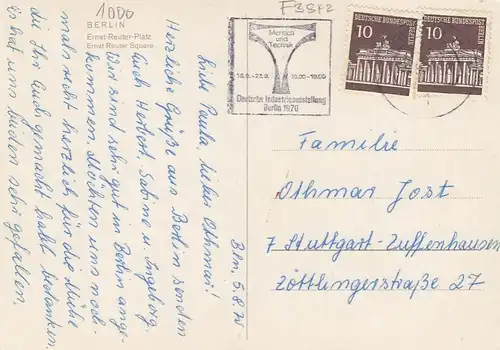 1000
BERLIN
Ernst-Reuter-Platz
Ernst Reuter Square
F3872
Mensch
und
Technik
18.9.-27.9. 10.00-19.00
Deutsche Industrieausstellung
Berlin 1970
DEUTSCHE BUNDESPOST
BERLIN
10
DEUTSCHE BUNDESPOST
BERLIN
10
Bln, 5.8.70
Liebe Paula, lieber Othmar!
Herzliche Grüße aus Berlin senden
Euch Herbert, Sabine u. Ingeborg.
Wir sind sehr gut in Berlin ange-
kommen. Möchten uns noch-
mals recht herzlich für die Mühe
die Ihr Euch gemacht habt bedanken.
Es hat uns beiden sehr gefallen.
Familie
Othmar Jost
7 Stuttgart-Zuffenhausen
Zöttlingerstraße 27